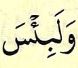 وَلَبِئۡسَ